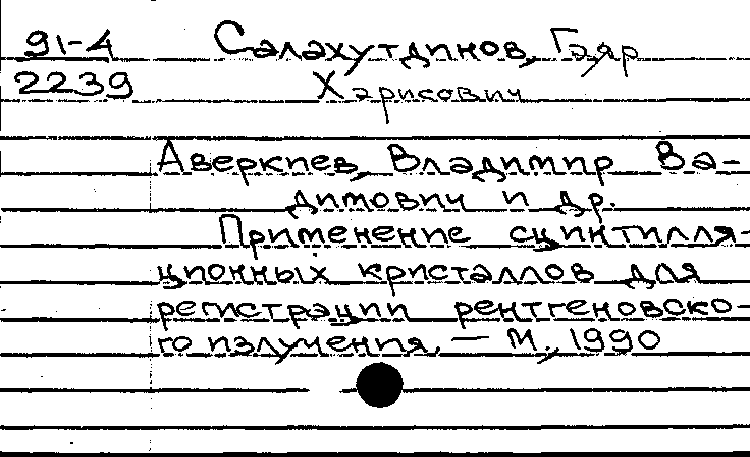 91-4 Салахутдинов, Гаяр
2239 Харисович
Аверкиев, Владимир Ва-
димович и др.
Применение сцинтилля-
ционных кристаллов для
регистрации рентгеновско-
го излучения. — М., 1990